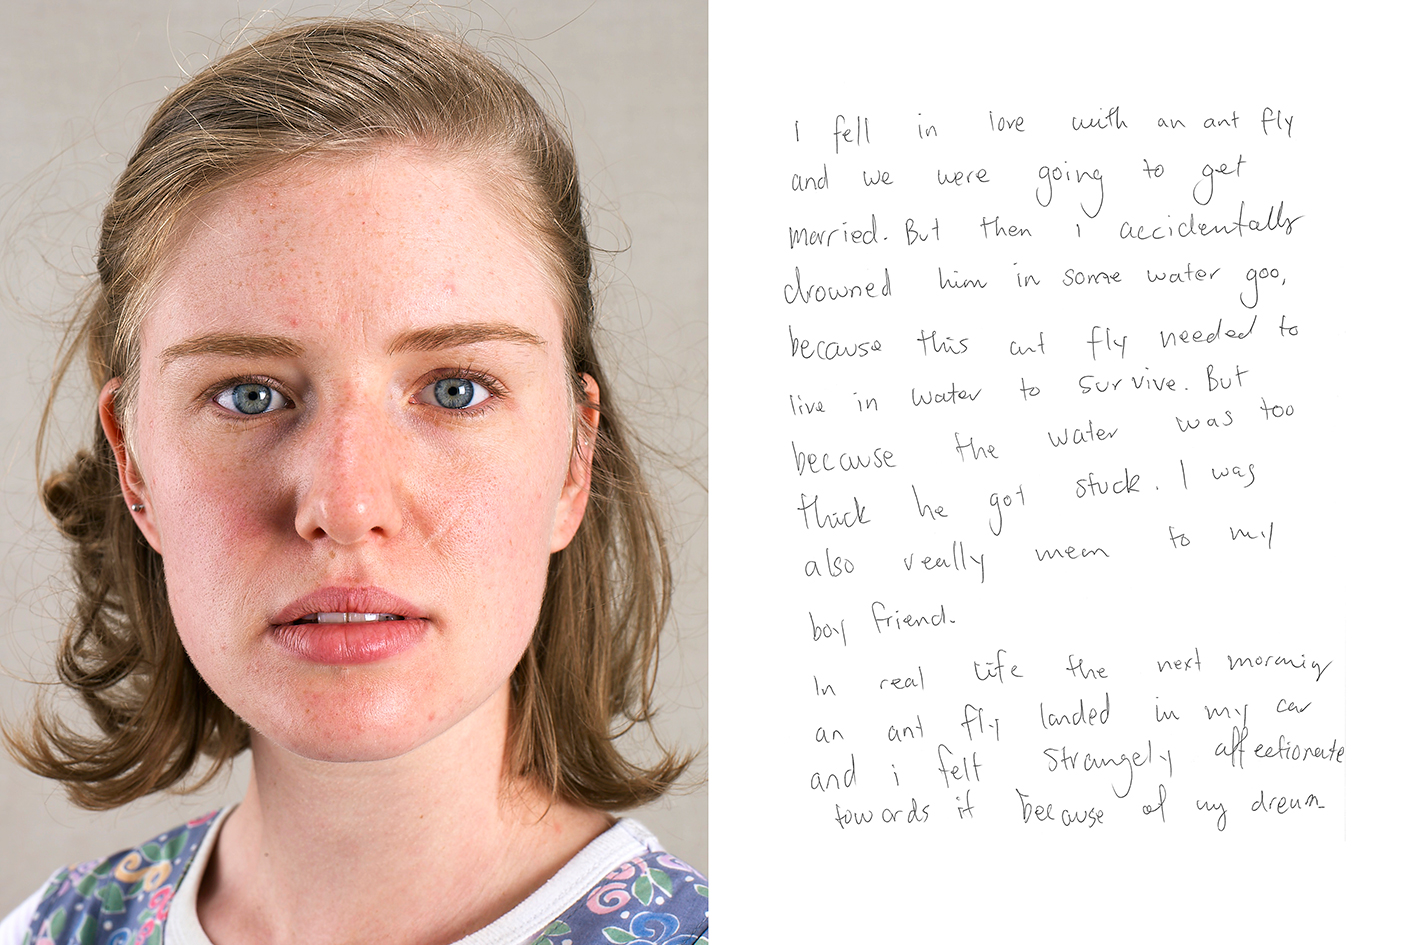 I fell in love with an ant fly
and we were going to get
married. But then i accidentally
drowned him in some water goo,
because this ant fly needed to
live in water to survive. But
because the water was too
thick he got stuck. I was
also really mean to my
boy friend.
In real life the next morning
an ant fly landed in my car
and i felt strangely affectionate
towards it because of my dream